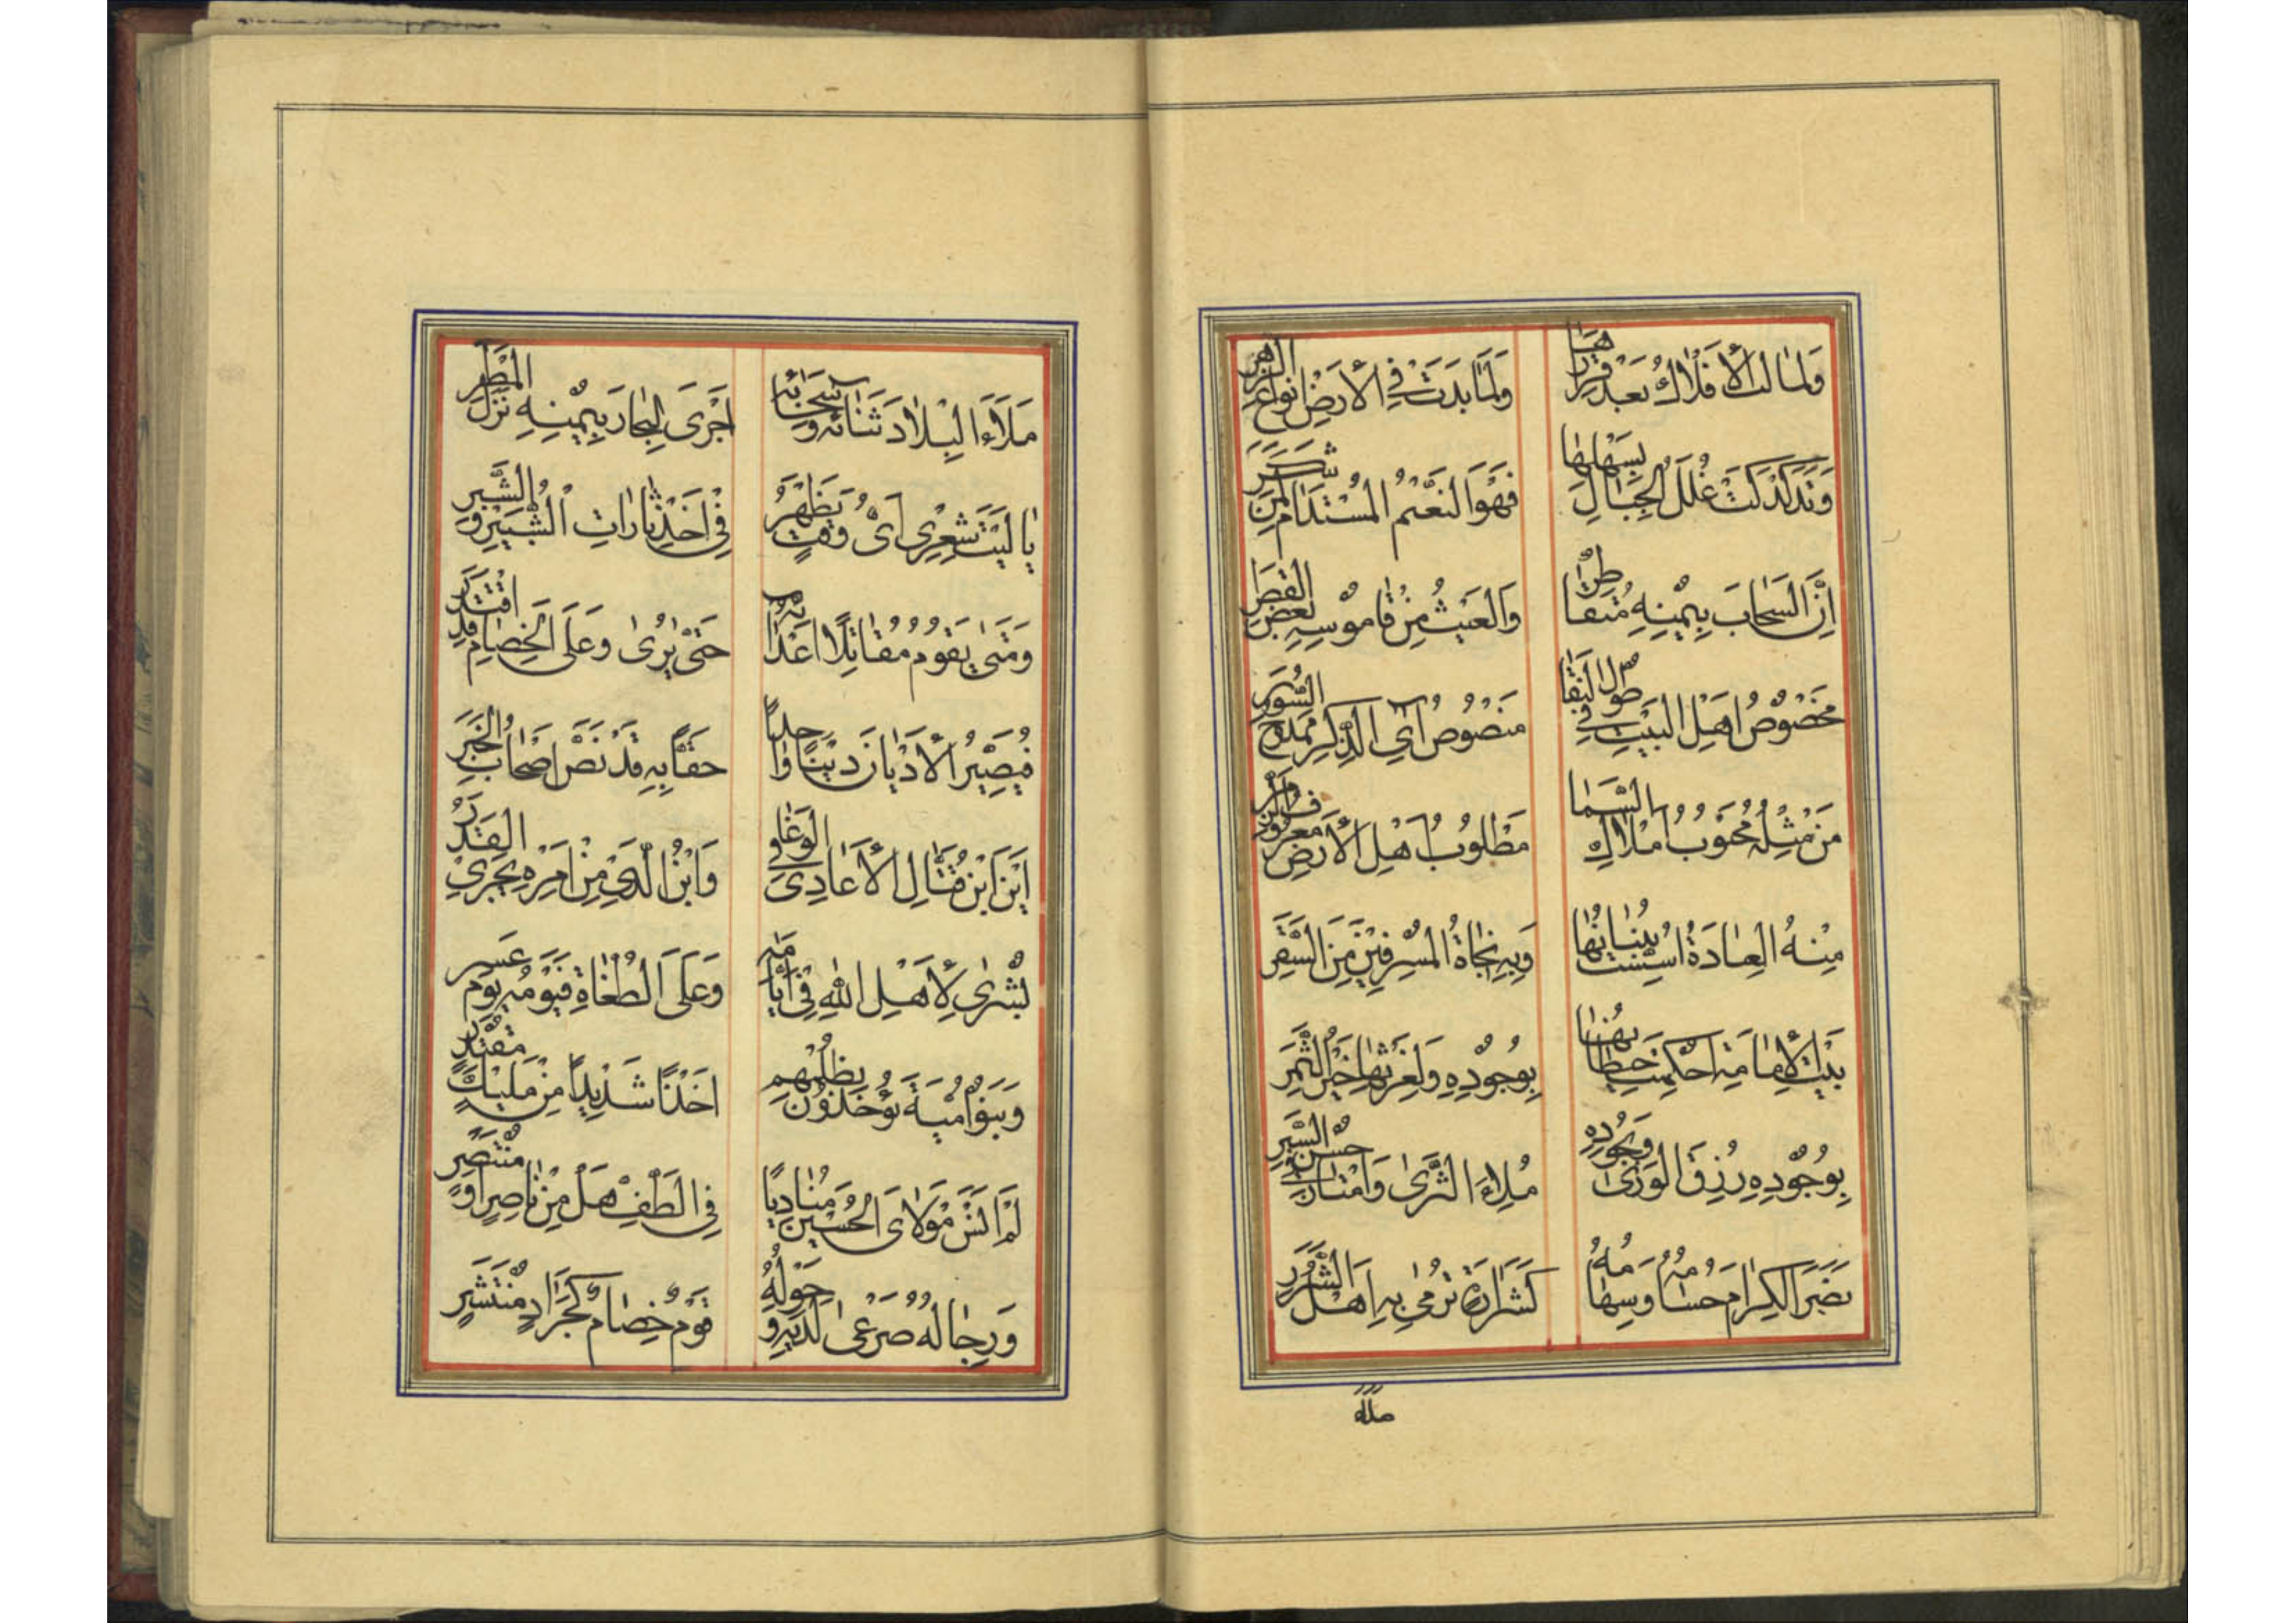 وَلَمَالَتِ الْأَفْلَاكُ بَعْدَ قَرَارِهَا
وَلَمَا بَدَتْ فِي الْأَرْضِ أَنْوَاعُ الزَّهَرِ
وَتَدَكْدَكَتْ الْجِبَالِ بِسَهْلِهَا
فَهُوَ النَّعِيمُ الْمُسْتَدَامُ لِمَنْ شَكَرَ
إِنَّ السَّحَابَ بِيَمِينِهِ مُتَقَاطِرٌ
وَالْغَيْثُ مِنْ قَامُوسِهِ بَعْضُ الْقَطَرِ
مَخْصُوصُ أَهْلِ الْبَيْتِ فِي
مَنْصُوصُ آيِ الذِّكْرِ مَمْدُوحُ السُّوَرِ
مَنْ مِثْلُهُ مَحْبُوبُ أَمْلَاكِ السَّمَا
مَطْلُوبُ أَهْلِ الْأَرْضِ مَعْرُوفُ
مِنْهُ الْعِبَادَةُ أُسِّسَتْ بُنْيَانُهَا
وَبِهِ نَجَاةُ الْمُسْرِفِينَ مِنَ السَّقَرِ
بَيْتُ الْإِمَامَةِ أُحْكِمَتْ حِيطَانُهَا
بِوُجُودِهِ وَلِغَرْسِهَا خَيْرُ الثَّمَرِ
بِوُجُودِهِ رُزِقَ الْوَرَى وَبِجُودِهِ
مُلِاءَ الثَّرَى وَامْتَازَ فِي حُسْنِ السِّيَرِ
نَصَرَ الْكِرَامَ حُسَامُهُ وَسِهَامُهُ
كَشَرَارَةٍ تُرْمَى بِهِ أَهْلُ الشَّرَرِ
ملاء
مَلَاءَ الْبِلَادَ ثَنَائُهُ وَسَحَابُهُ
أَجْرَى الْبِحَارَ بِيَمِينِهِ نَزَلَ الْمَطَرِ
يَا لَيْتَ شِعْرِي أَيَّ وَقْتٍ يَظْهَرُ
فِي أَخْذِ ثَارَاتِ الشَّبِيرِ وَالشَّبَرِ
وَمَتَى يَقُومُ مُقَاتِلًا أَعْدَائِهِ
حَتَّى يُرَى وَعَلَى الْخِصَامِ قَدِ اقْتَدَرَ
فَيُصَيِّرُ الْأَدْيَانَ دِينًا وَاحِدًا
حَقًّا بِهِ قَدْ نَصَّ أَصْحَابُ الْخَبَرِ
أَيْنَ ابْنُ قَتَّالِ الْأَعَادِي فِي الْوَغَا
وَابْنُ الَّذِي مِنْ أَمْرِهِ يَجْرِي الْقَدَرُ
بُشْرَى لِأَهْلِ اللهِ فِي أَيَّامِهِ
وَعَلَى الطُّغَاةِ فَيَوْمُهُ يَوْمٌ عَسِرٌ
وَبَنُو أُمَيَّةَ يُؤْخَذُونَ بِظُلْمِهِمْ
أَخْذًا شَدِيدًا مِنْ مَلِيكٍ مُقْتَدِرٍ
لَمْ أَنْسَ مَوْلَايَ الْحُسَيْنَ مُنَادِيًا
فِي الطَّفِّ هَلْ مِنْ نَاصِرٍ أَوْ مُنْتَصِرٍ
وَرِجَالُهُ صَرْعَى لَدَيْهِ وَحَوْلَهُ
قَوْمٌ خِصَامٌ كَجَرَادٍ مُنْتَشِرٍ